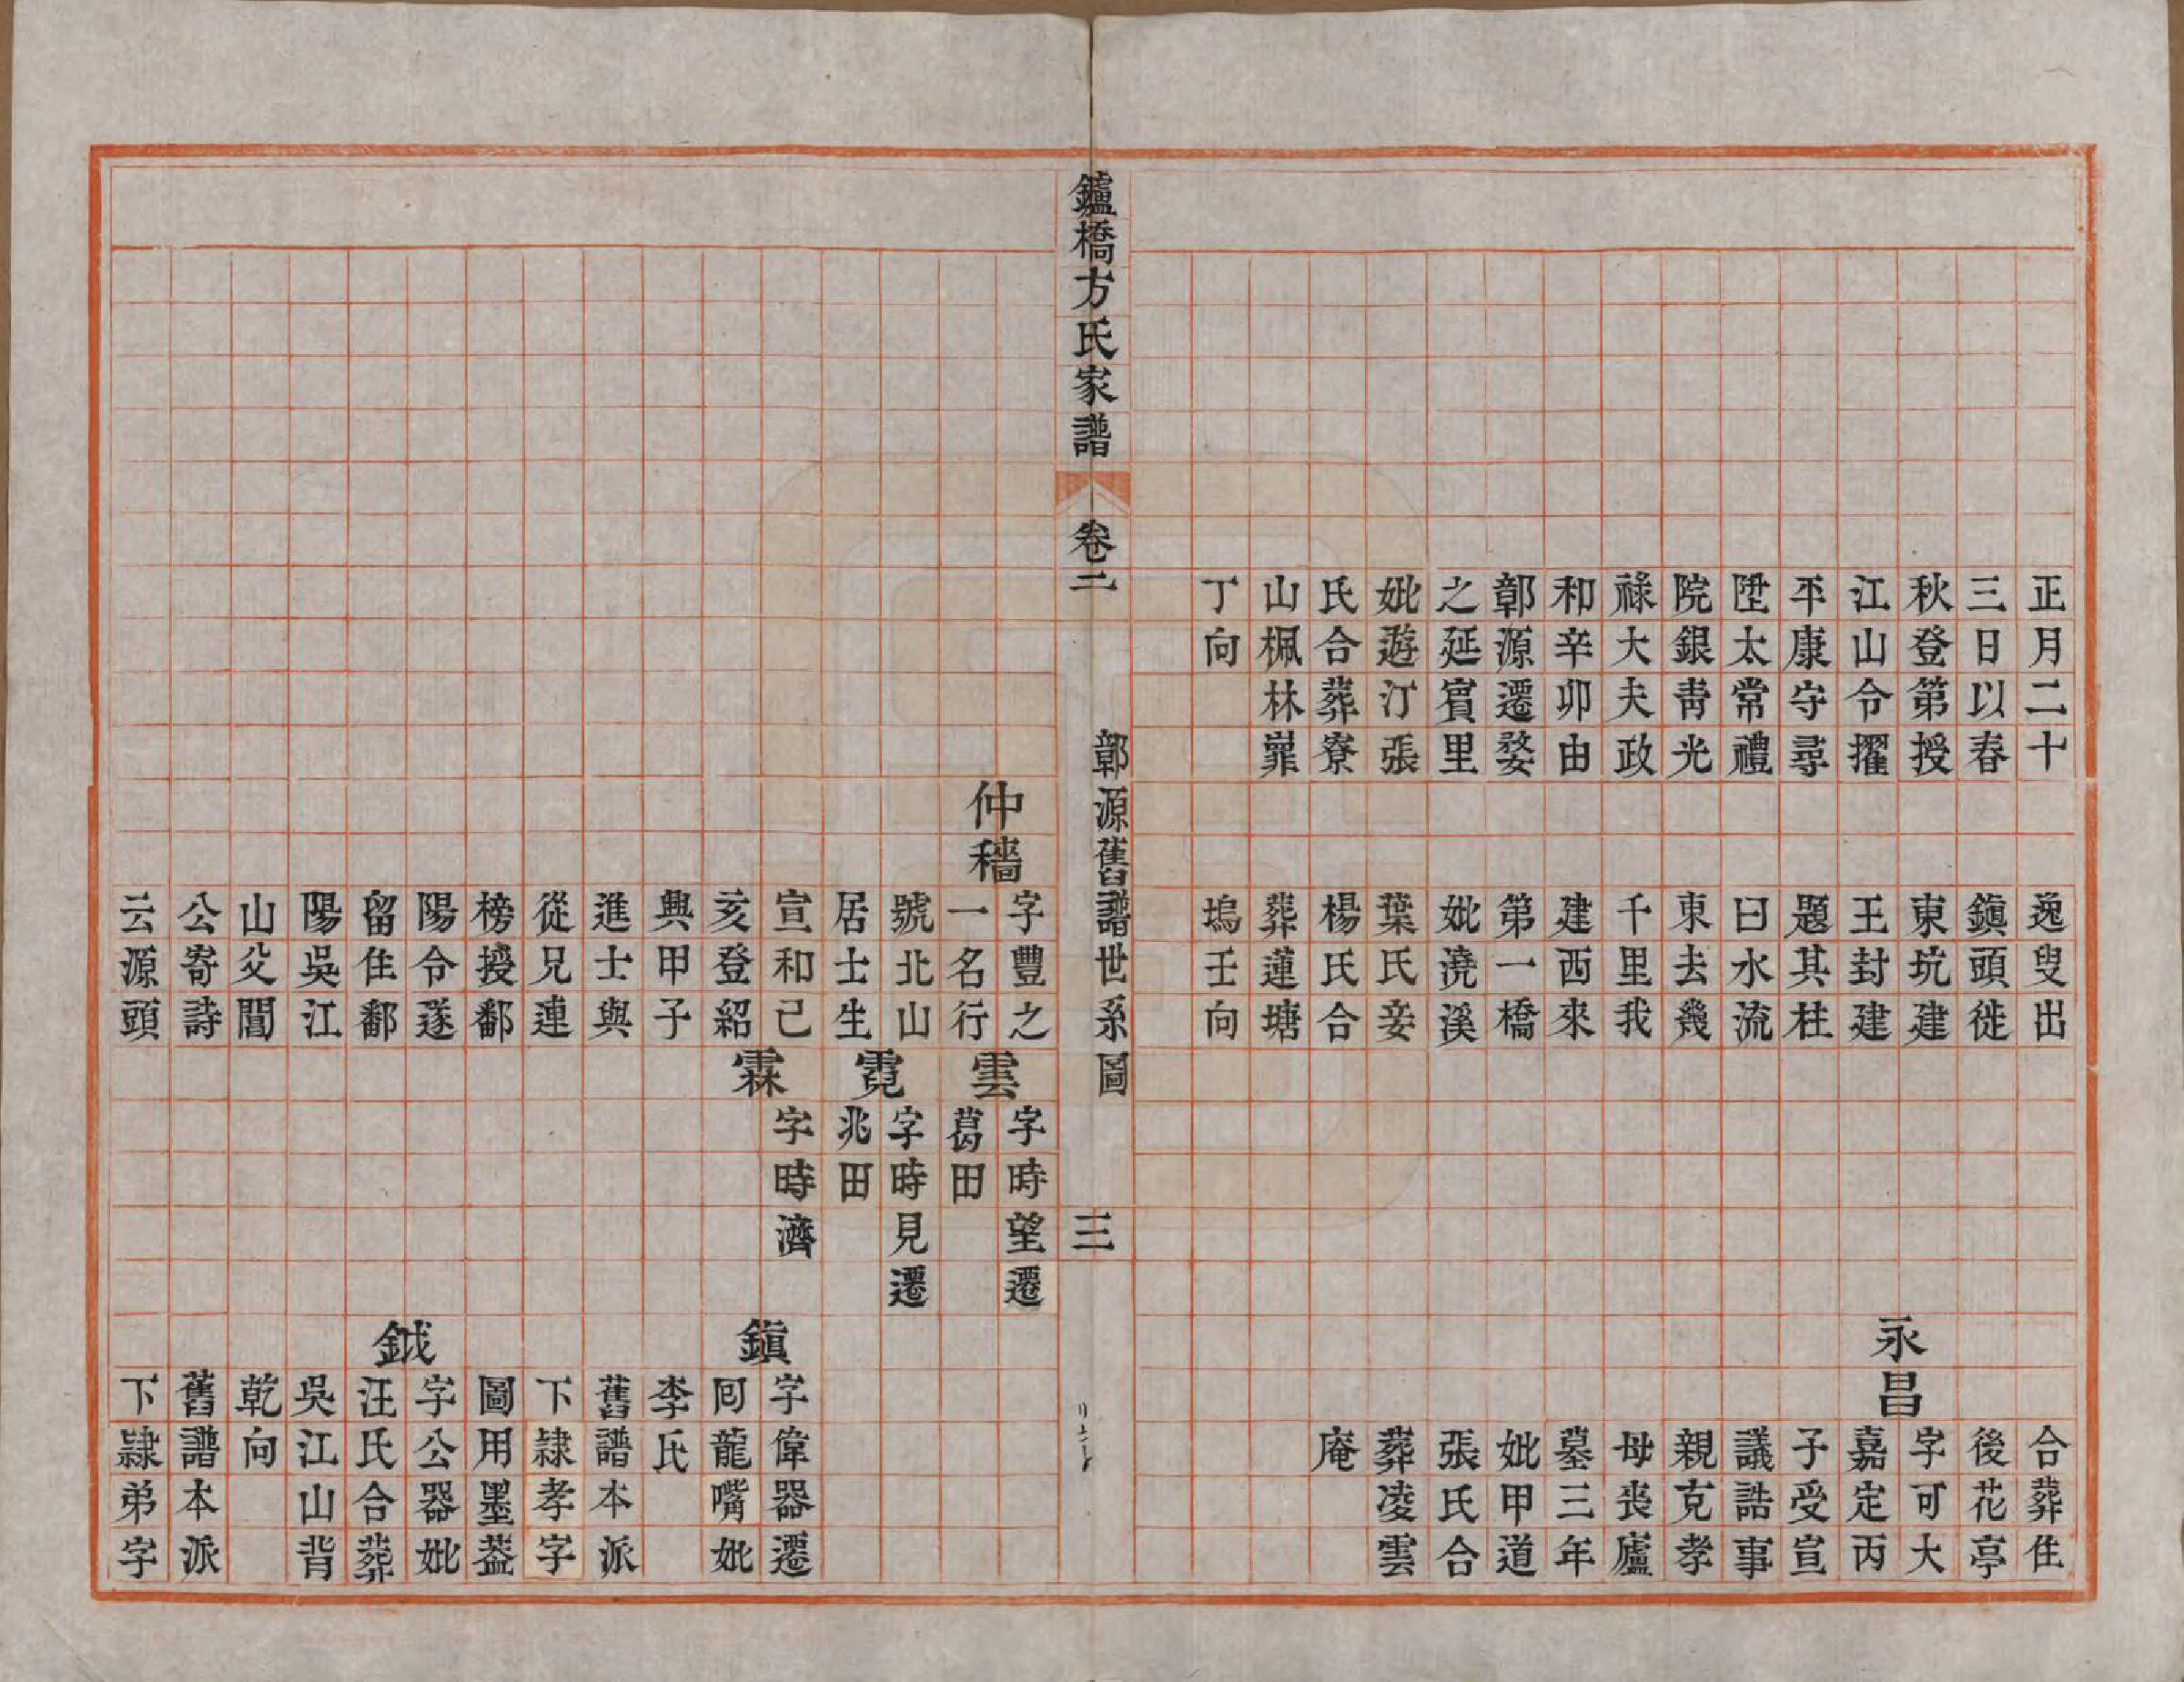 正月二十
三日以春
秋登第授
江山令擢
平康守尋
陞太常禮
院銀青光
祿大夫政
和辛卯由
鄣源遷婺
之延賓里
妣遊汀張
氏合葬寮
山楓林嶵
丁向
逸叟出
鎮頭徙
東坑建
王封建
題其柱
曰水流
東去幾
千里我
建西來
第一橋
妣澆溪
葉氏妾
楊氏合
葬蓮塘
塢壬向
合葬住
後花亭
永昌
字可大
嘉定丙
子受宣
議誥事
親克孝
母喪廬
墓三年
妣甲道
張氏合
葬凌雲
庵
鑪橋方氏家譜
卷二
鄣源舊譜世系圖
三
仲穡
字豐之
一名行
號北山
居士生
宣和己
亥登紹
興甲子
進士與
從兄連
榜授鄱
陽令遂
留住鄱
陽吳江
山父閶
公寄詩
云源頭
雲
字時望遷
葛田
霓
字時見遷
兆田
霖
字時濟
鎮
字偉器遷
囘龍嘴妣
李氏
舊譜本派
下隸孝字
圖用墨葢
鉞
字公器妣
汪氏合葬
吳江山背
乾向
舊譜本派
下隸弟字